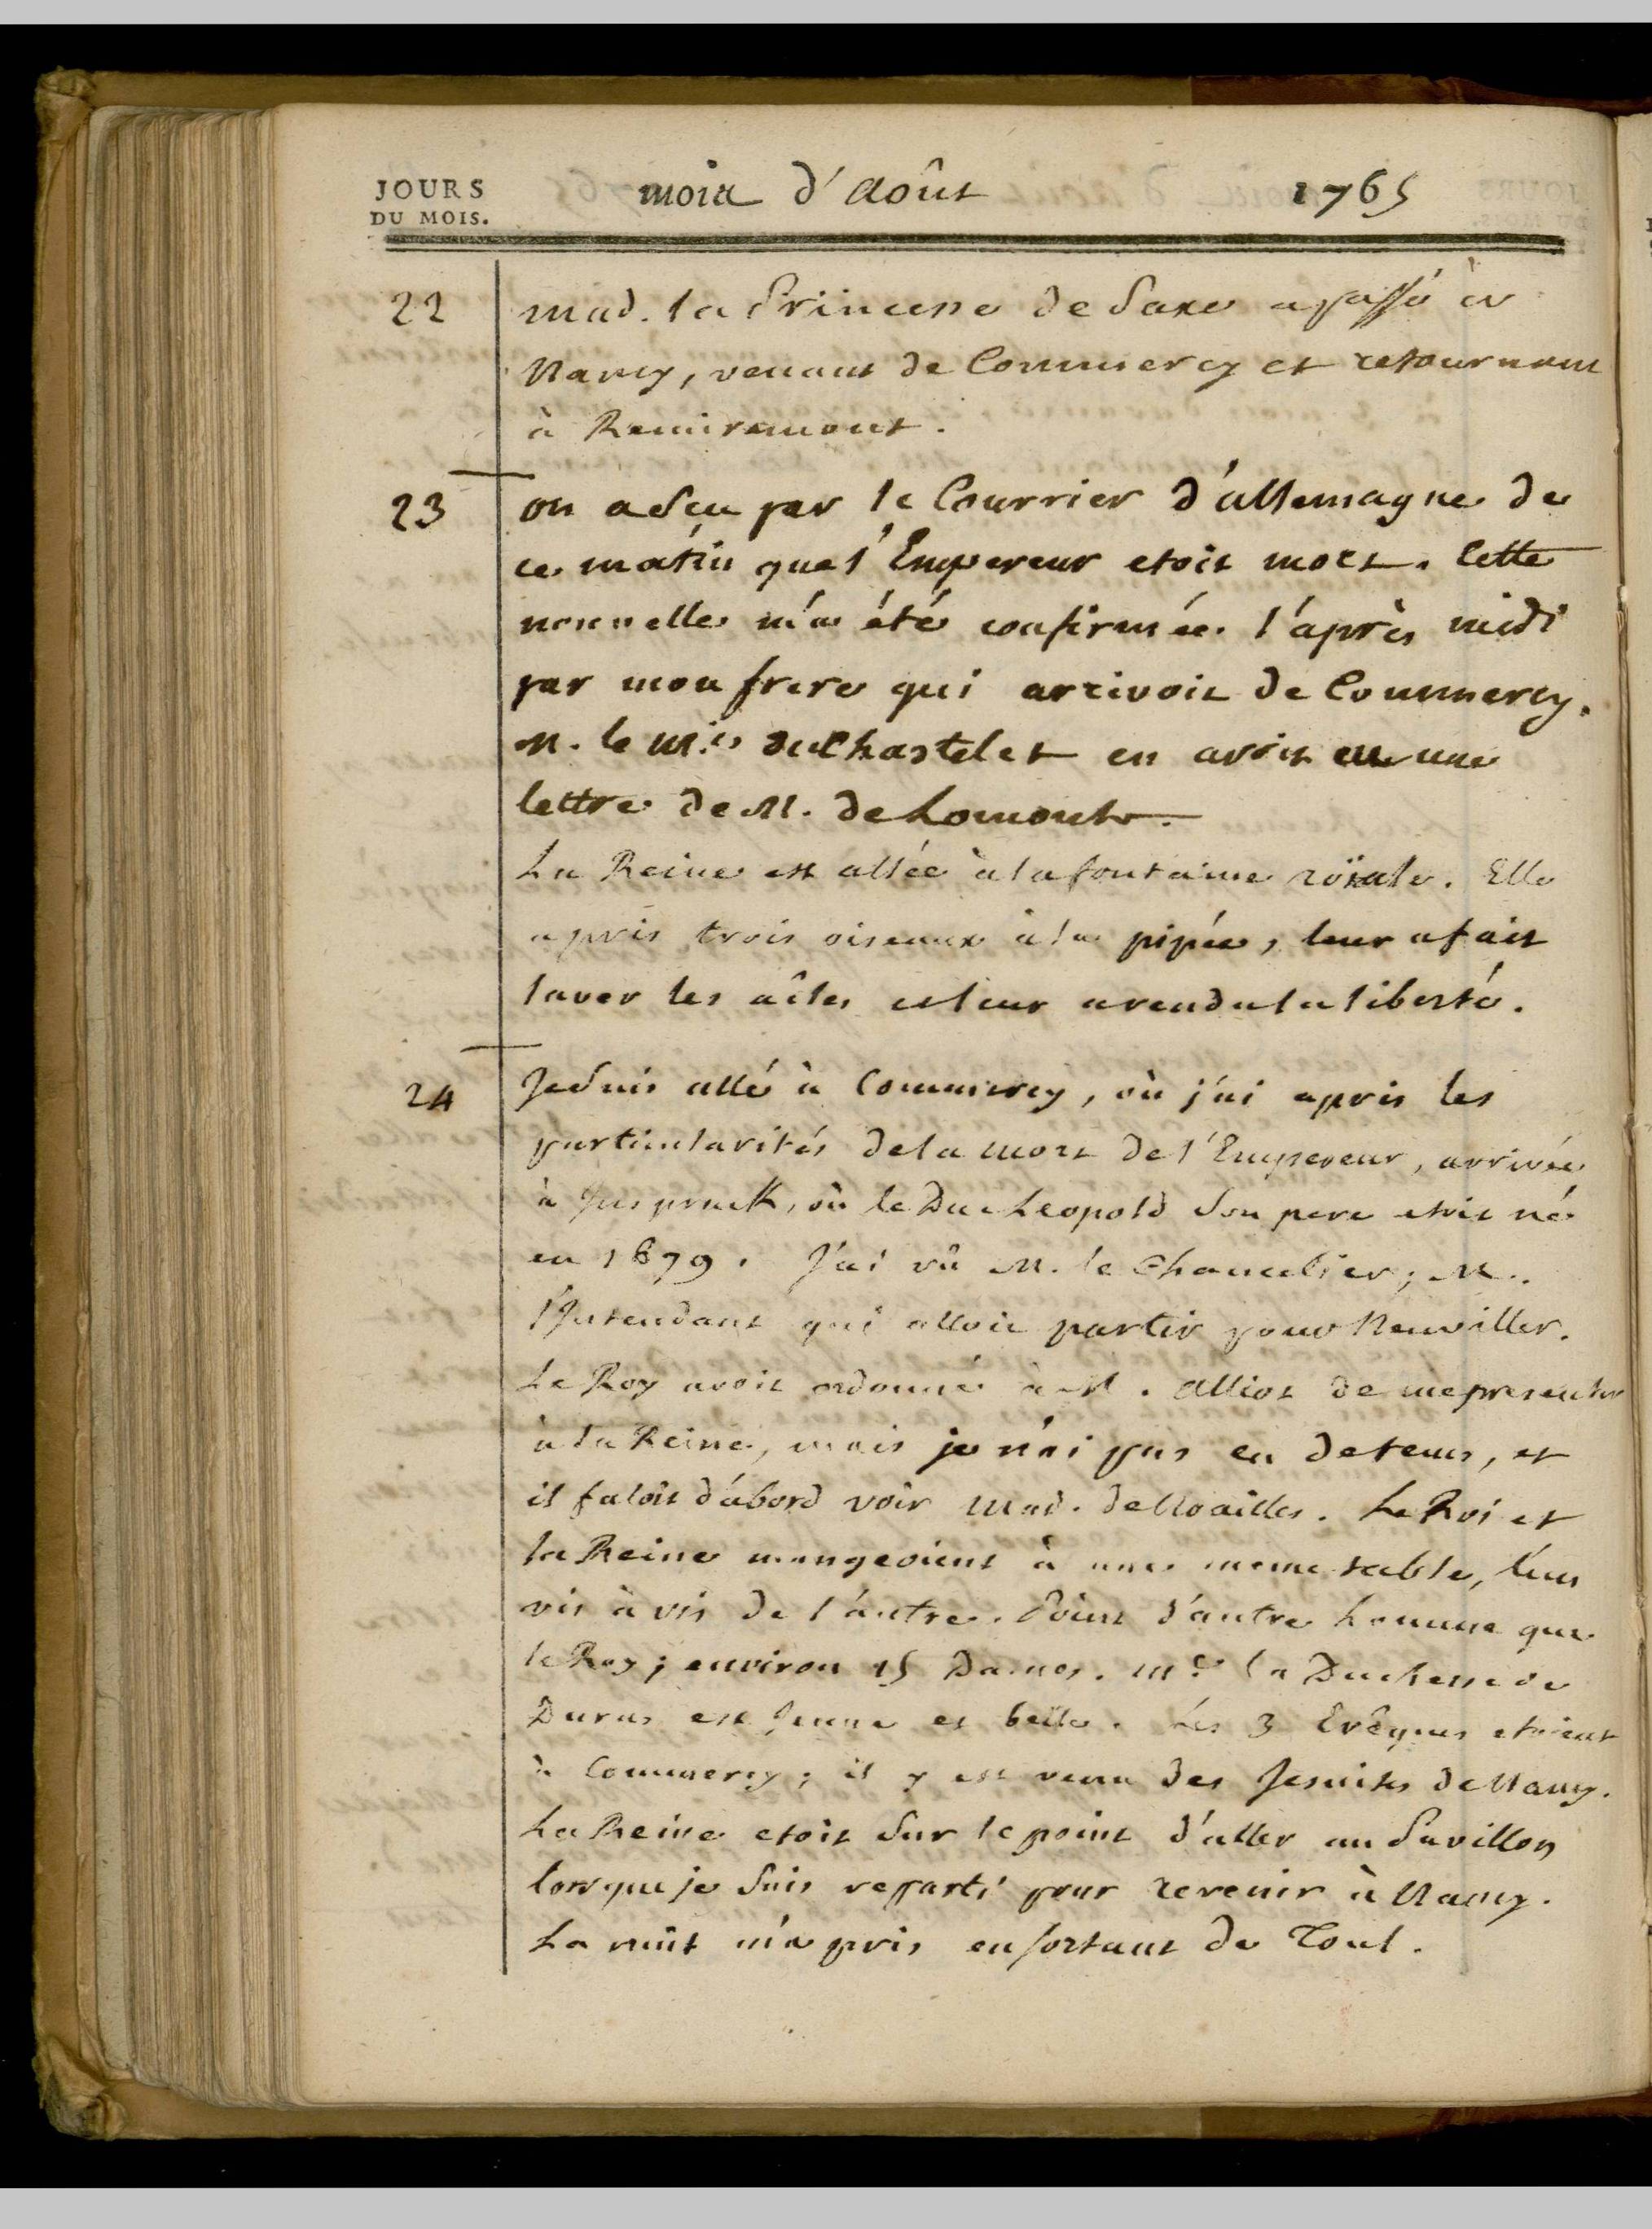 JOURS
DU MOIS.
mois d'Août 1765
22 Mad. la Princesse de Saxe a passé à
Nancy, venant de Commercy et retournant
à Remiremont.
23 on a sçu par le Courrier d'allemagne de
ce matin que l'Empereur etoit mort. Cette
nouvelle m'a été confirmée l'après midi
par mon frere qui arrivoit de Commercy.
M. le M.is du Chastelet en avoit eu une
lettre de M. de Lomont.
La Reine est allée à la fontaine roïale. Elle
a pris trois oiseaux à la pipée, leur a fait
laver les aîles et leur a rendu la liberté.
24 Je suis allé à Commercy, où j'ai apris les
particularités de la mort de l'Empereur, arrivée
à Inspruck, où le Duc Leopold son pere etoit né
en 1679. J'ai vû M. le Chancelier; M.
l'Intendant qui alloit partir pour Neuviller.
Le Roy avoit ordonné à M. Alliot de me presenter
à la Reine, mais je n'ai pas eu de tems, et
il faloit d'abord voir Mad. de Noailles. Le Roi et
la Reine mangeoient à une meme table, l'un
vis à vis de l'autre. Point d'autre homme que
le Roy; environ 15 Dames. M.e la Duchesse de
Duras est jeune et belle. Les 3 Evêques etoient
à Commercy; il y est venu des Jesuites de Nancy.
La Reine etoit sur le point d'aller au Pavillon
lorsque je suis reparti pour revenir à Nancy.
La nuit m'a pris en sortant de Toul.